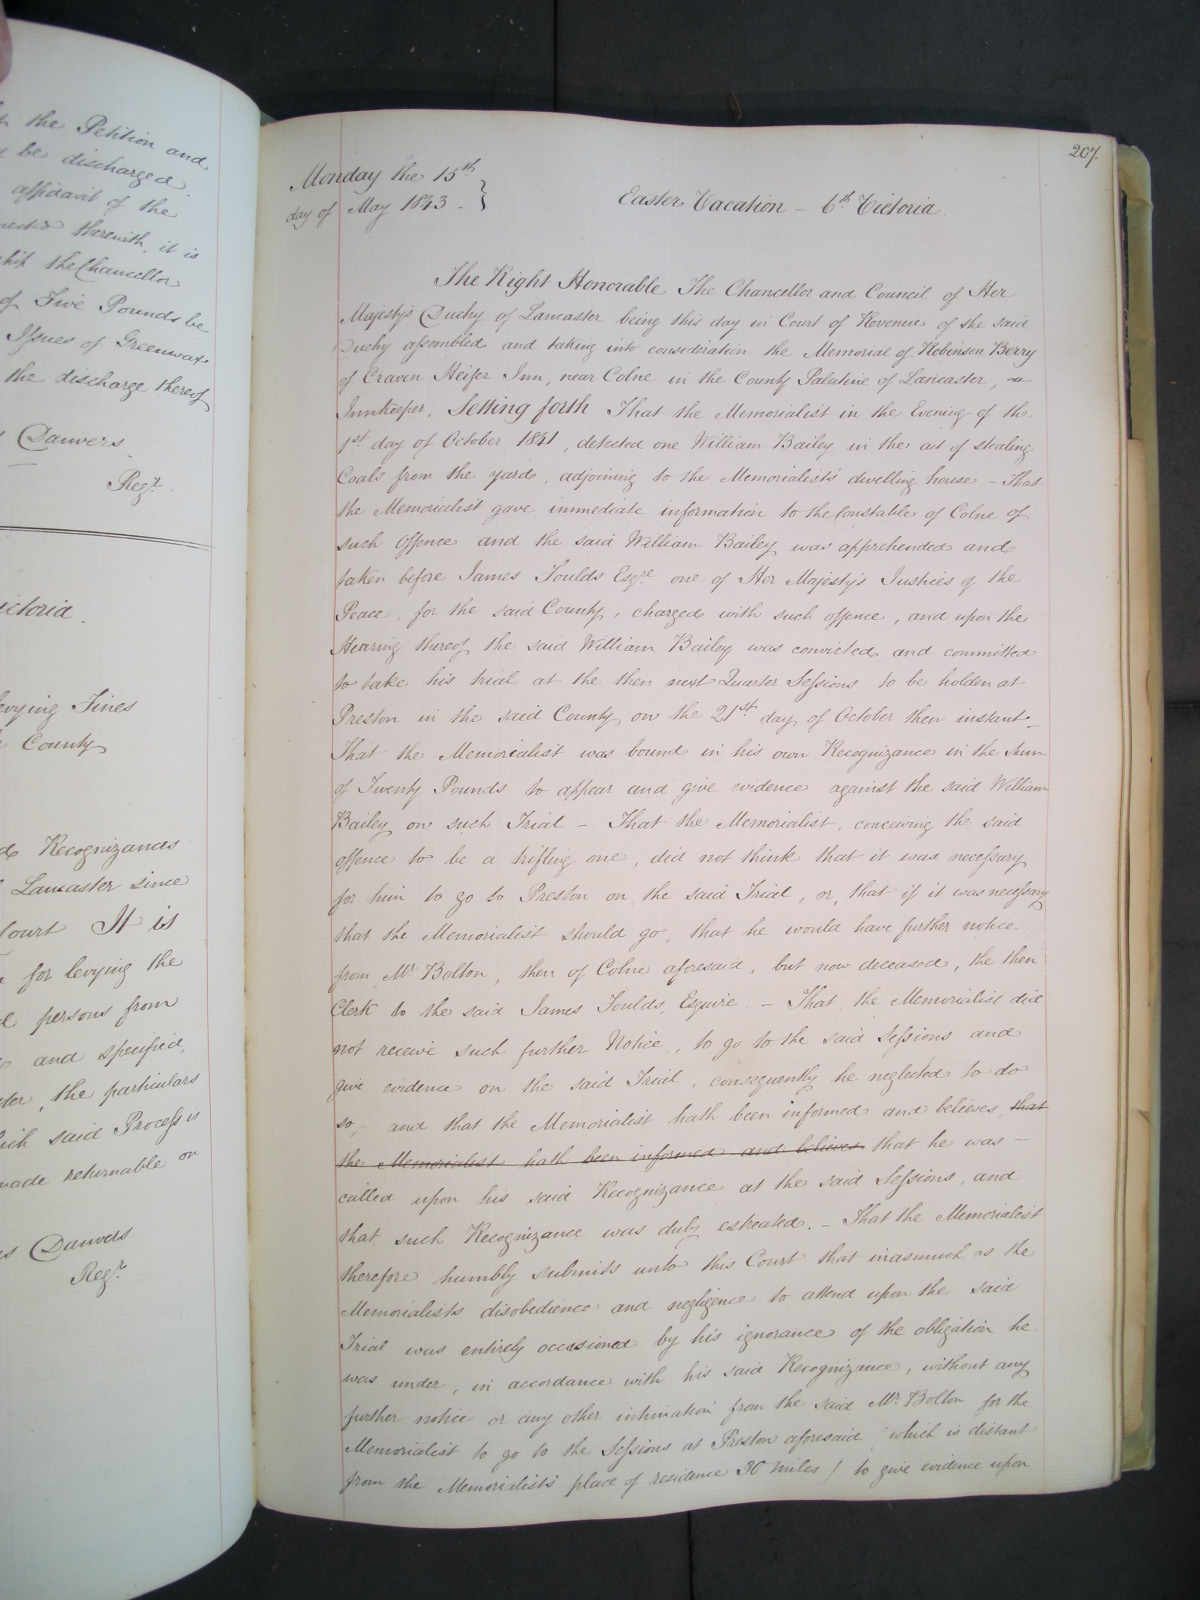 the Petition and
be discharged
affidavit of the
therewith, it is
the Chancellor
of Five Pounds be
Issues of Greenwax
the discharge thereof
Danvers
Regr.
ictoria.
evying Fines
County
Recognizances
Lancaster since
Court It is
for levying the
persons from
and specified,
the particulars
said Process is
made returnable on
Danvers
Regr.
207.
Monday the 15th
day of May 1843 - }
Easter Vacation - 6th Victoria.
The Right Honorable The Chancellor and Council of Her
Majesty's Duchy of Lancaster being this day in Court of Revenue of the said
Duchy assembled and taking into consideration the Memorial of Robinson Berry
of Craven Heifer Inn, near Colne in the County Palatine of Lancaster, -
Innkeeper, Setting forth That the Memorialist in the Evening of the
1st day of October 1841, detected one William Bailey in the act of stealing
Coals from the yard, adjoining to the Memorialists dwelling house - That
the Memorialist gave immediate information to the Constable of Colne of
such Offence and the said William Bailey was apprehended and
taken before James Foulds Esqre one of Her Majesty's Justices of the
Peace, for the said County, charged with such offence, and upon the
Hearing thereof the said William Bailey was convicted and committed
to take his trial at the then next Quarter Sessions to be holden at
Preston in the said County on the 21st day of October then instant -
That the Memorialist was bound in his own Recognizance in the Sum
of Twenty Pounds to appear and give evidence against the said William
Bailey on such Trial - That the Memorialist, conceiving the said
offence to be a trifling one, did not think that it was necessary
for him to go to Preston on the said Trial, or, that if it was necessary
that the Memorialist should go, that he would have further notice
from Mr Bolton, then of Colne aforesaid, but now deceased, the then
Clerk to the said James Foulds, Esquire. - That the Memorialist did
not receive such further Notice, to go to the said Sessions and
give evidence on the said Trial, consequently he neglected to do
so, - and that the Memorialist hath been informed and believes, that
the Memorialist hath been informed and believes that he was -
called upon his said Recognizance at the said Sessions, and
that such Recognizance was duly estreated. - That the Memorialist
therefore humbly submits unto this Court that inasmuch as the
Memorialists disobedience and negligence to attend upon the said
Trial was entirely occasioned by his ignorance of the obligation he
was under, in accordance with his said Recognizance, without any
further notice or any other intimation from the said Mr. Bolton for the
Memorialist to go to the Sessions at Preston aforesaid (which is distant
from the Memorialists place of residence 30 Miles) to give evidence upon